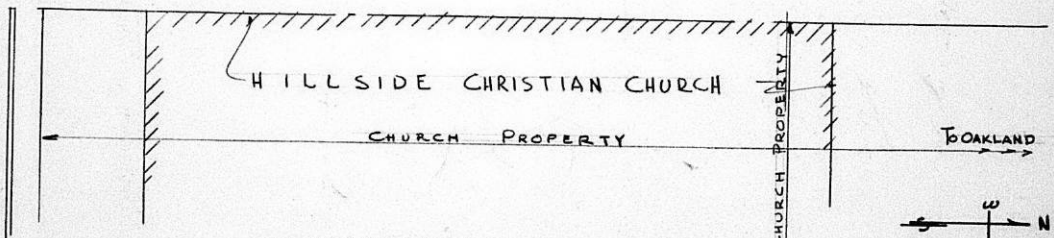 HILLSIDE CHRISTIAN CHURCH
CHURCH PROPERTY
CHURCH PROPERTY
To OAKLAND
W
S N